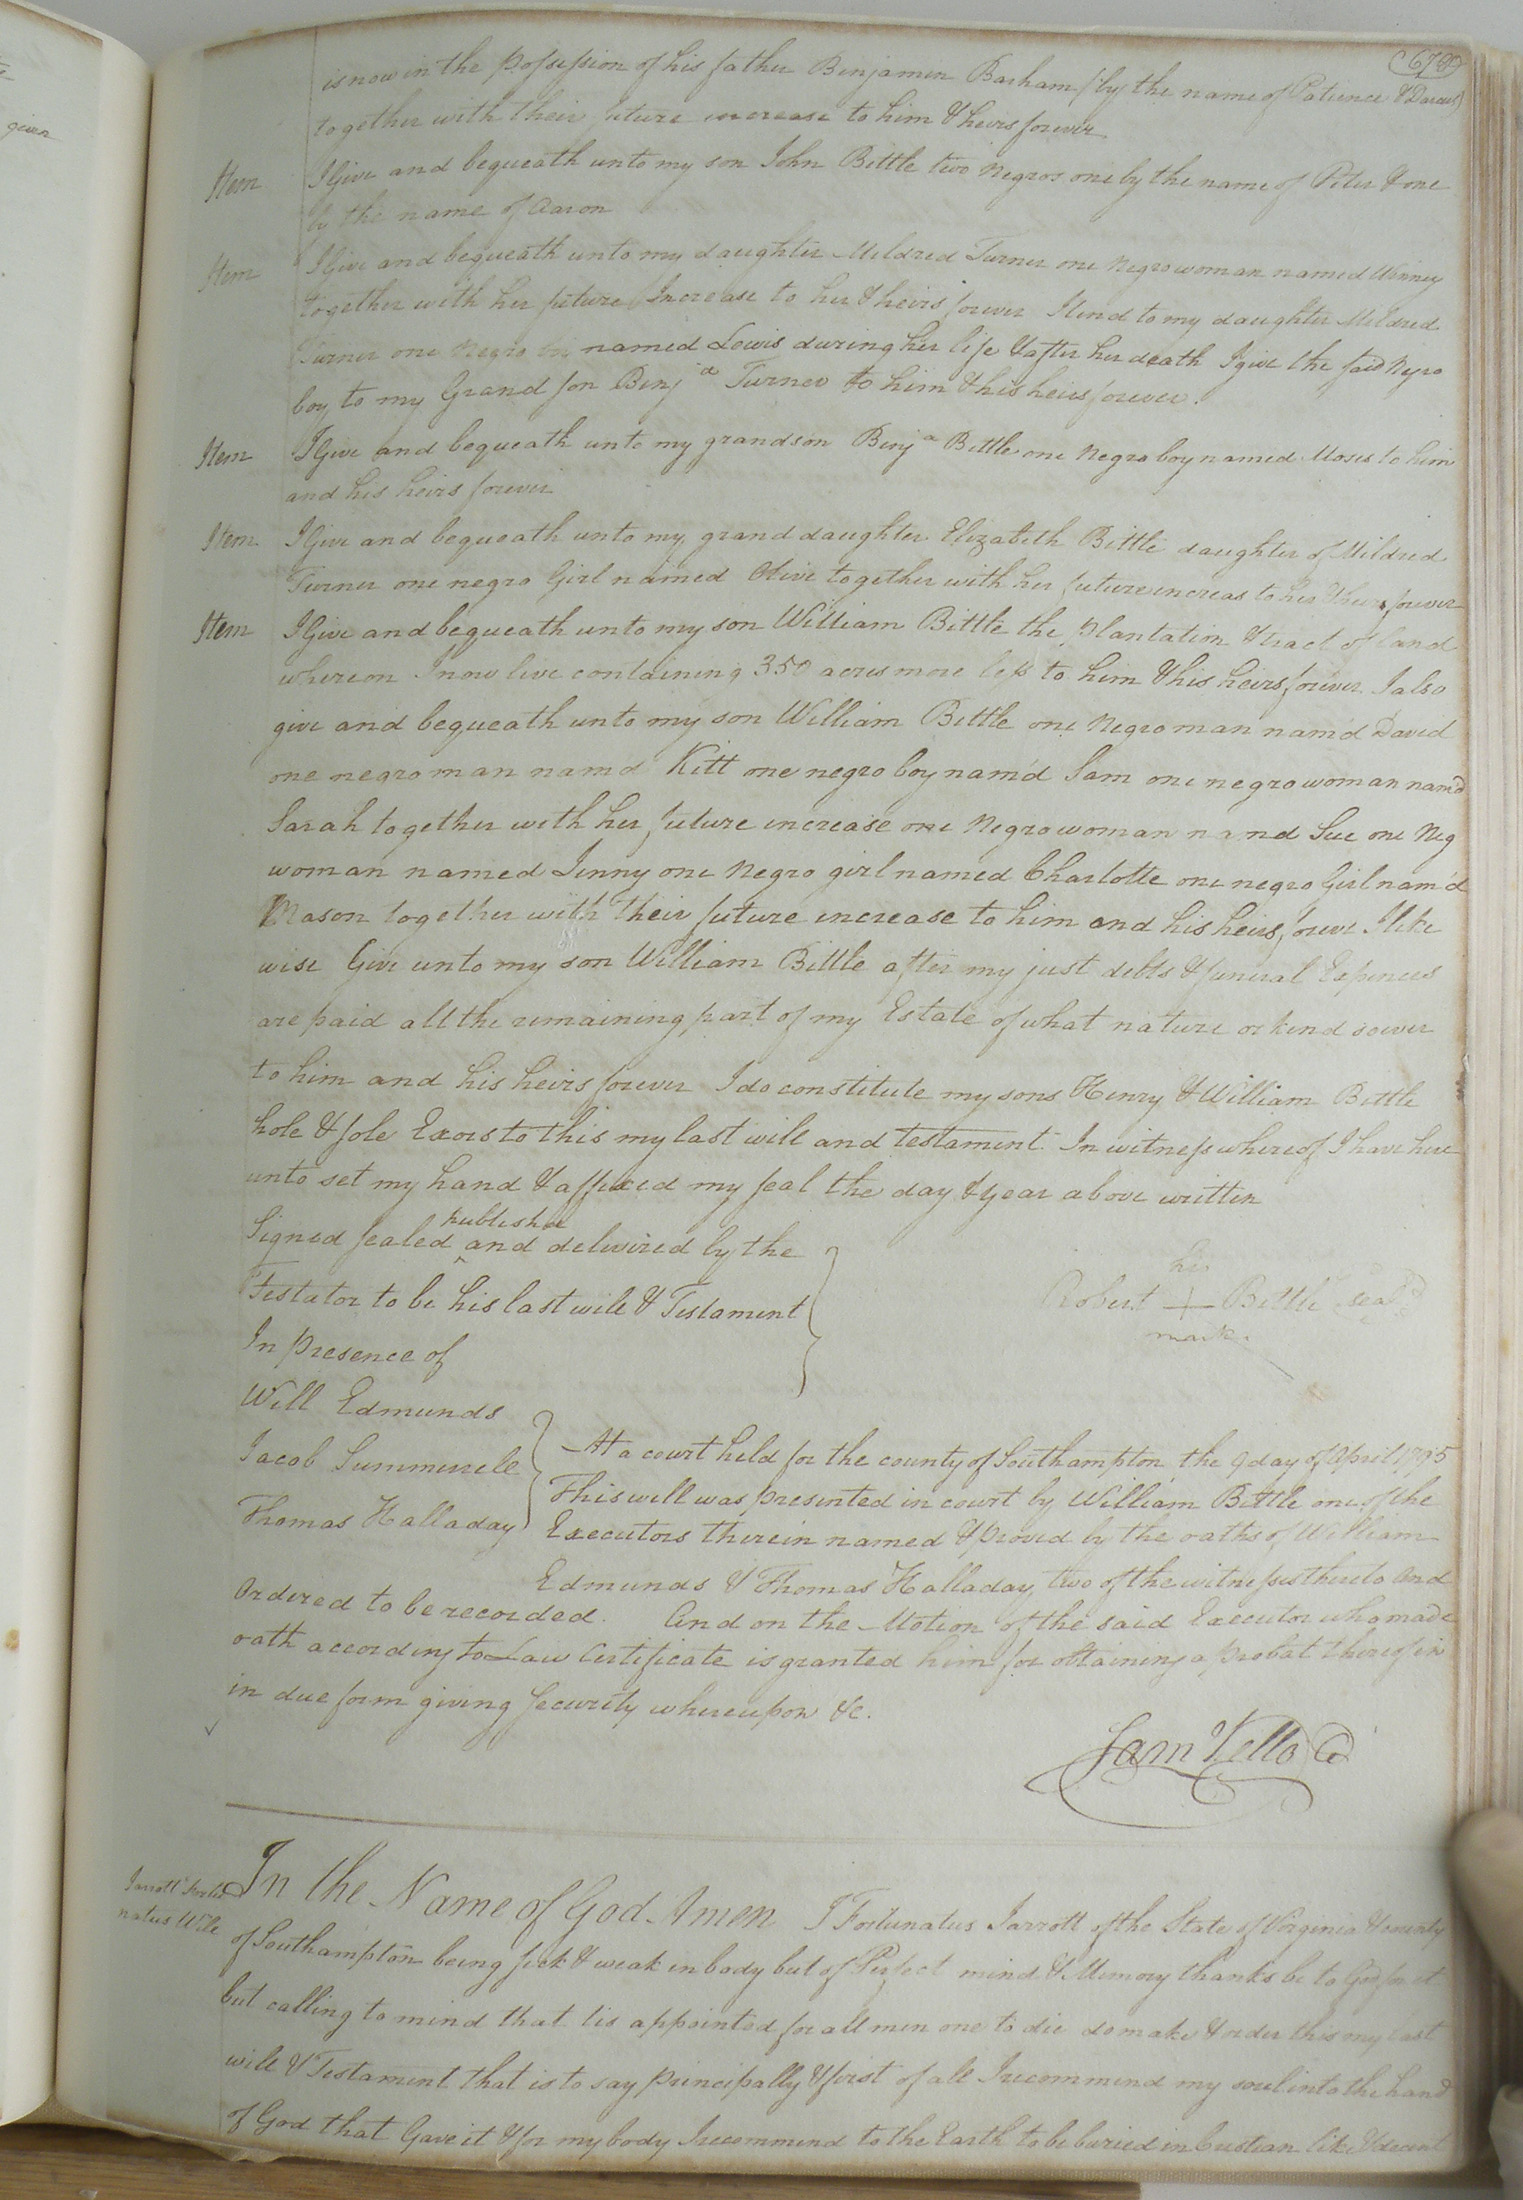 (678)
is now in the possession of his father Benjamin Barham (by the name of Patience & Darcus)
together with their future increase to him & heirs forever
Item I Give and bequeath unto my son John Bittle two Negros one by the name of Peter & one
by the name of Aaron
Item I Give and bequeath unto my daughter Mildred Turner one Negro woman named Winney
together with her future Increase to her & heirs forever I lend to my daughter Mildred
Turner one Negro boy named Lewis during her life & after her death I give the said Negro
boy to my Grand son Benja Turner to him & his heirs forever.
Item I Give and bequeath unto my grandson Benja Bittle one Negro boy named Moses to him
and his heirs forever
Item I Give and bequeath unto my grand daughter Elizabeth Bittle daughter of Mildred
Turner one negro Girl named Olive together with her future increas to her & heirs forever
Item I Give and bequeath unto my son William Bittle the plantation & tract of land
whereon I now live containing 350 acres more less to him & his heirs forever I also
give and bequeath unto my son William Bittle one Negro man nam'd David
one negro man nam'd Kitt one negro boy nam'd Sam one negro woman nam'd
Sarah together with her future increase one Negro woman namd Sue one Neg
woman named Jenny one Negro girl named Charlotte one negro Girl nam'd
Mason together with their future increase to him and his heirs forever I like
wise Give unto my son William Bittle after my just debts & funeral Expences
are paid all the remaining part of my Estate of what nature or kind soever
to him and his heirs forever I do constitute my sons Henry & William Bittle
hole & sole Exors to this my last will and testament In witness whereof I have here
unto set my hand & affixed my seal the day & year above written
published
Signed sealed ^ and delivered by the
Testator to be his last will & Testament
In presence of
his
Robert + Bittle seal
mark.
Will Edmunds
Jacob Summerell
Thomas Halladay
At a court held for the county of Southampton the 9 day of April 1795
This will was presented in court by William Bittle one of the
Executors therein named & proved by the oaths of William
Edmunds & Thomas Halladay two of the witnesses thereto and
Ordered to be recorded. And on the Motion of the said Executor who made
oath according to Law Certificate is granted him for obtaining a probat thereof in
in due form giving security whereupon &c.
Sam Kello C
Jarrott Fortu
natus Will
In the Name of God Amen I Fortunatus Jarrott of the State of Virginia & county
of Southampton being sick & weak in body but of Perfect mind & Memory thanks be to God for it
but calling to mind that tis appointed for all men one to die do make & order this my last
will & Testament that is to say principally & first of all I recommend my soul into the hand
of God that Gave it & for my body I recommend to the Earth to be buried in Cristian like & decent
given